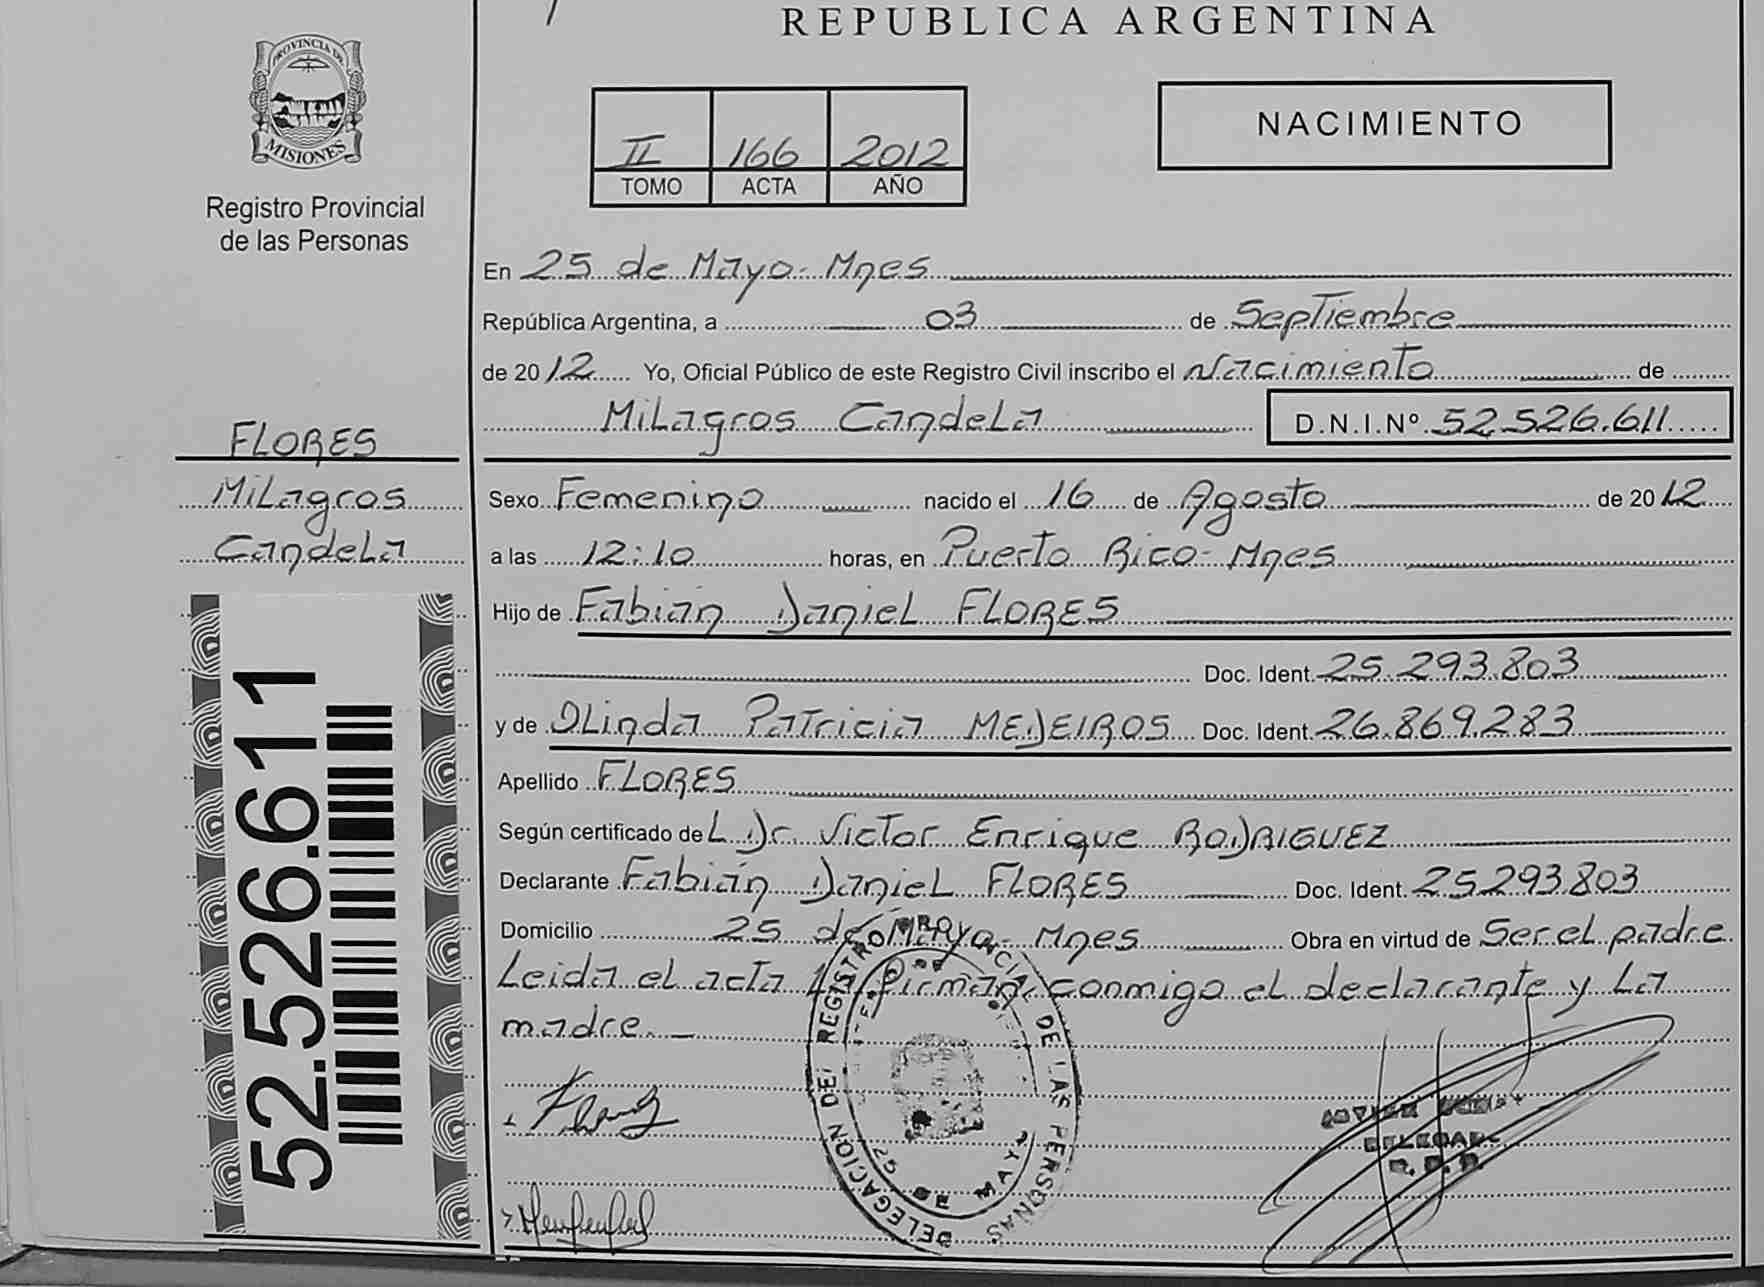 REPUBLICA ARGENTINA
PROVINCIA DE
MISIONES
Registro Provincial
de las Personas
II 166 2012
TOMO ACTA AÑO
NACIMIENTO
En 25 de Mayo - Mnes
República Argentina, a 03 de Septiembre
de 2012 Yo, Oficial Público de este Registro Civil inscribo el Nacimiento de
Milagros Candela D.N.I.Nº 52.526.611
FLORES
Milagros
Candela
52.526.611
Sexo Femenino nacido el 16 de Agosto de 2012
a las 12:10 horas, en Puerto Rico - Mnes
Hijo de Fabián Daniel FLORES
Doc. Ident. 25.293.803
y de OLinda Patricia MEDEIROS Doc. Ident. 26.869.283
Apellido FLORES
Según certificado de L Dr. Victor Enrique RODRIGUEZ
Declarante Fabián Daniel FLORES Doc. Ident. 25.293.803
Domicilio 25 de Mayo - Mnes Obra en virtud de Ser el padre
Leida el acta la firman conmigo el declarante y La
madre.
DELEGACION DEL REGISTRO PROVINCIAL DE LAS PERSONAS
25 DE MAYO
DELEGADO
R. P. P.